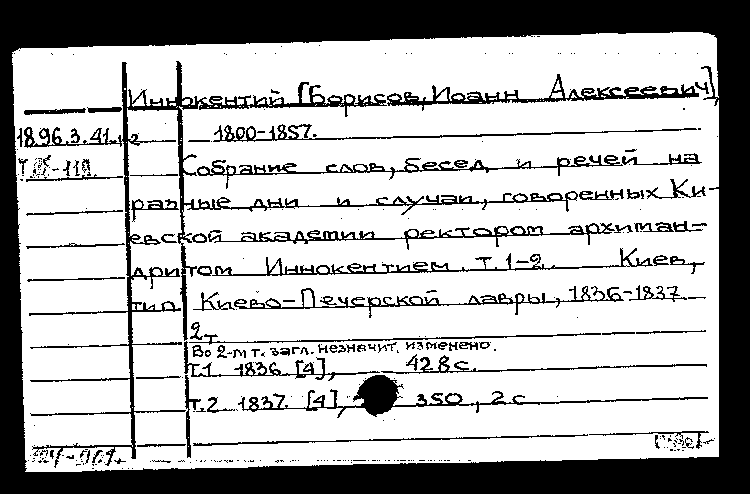 Иннокентий [Борисов, Иоанн Алексеевич],
18.96.3.41.1-2 1800-1857.
Собрание слов, бесед и речей на
разные дни и случаи, говоренных Ки-
евской академии ректором архиман-
дритом Иннокентием. Т.1-2. Киев,
тип. Киево-Печерской лавры, 1836-1837
2 т.
Во 2-м т. загл. незначит. изменено.
Т.1 1836. [4], 428 с.
т.2 1837. [4], 350, 2 с.